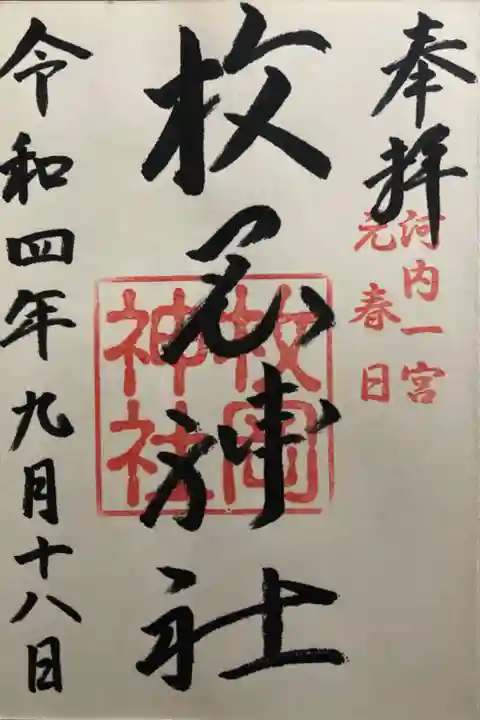 奉拝
河内一宮
元春日
枚岡神社
枚岡
神社
令和四年九月十八日